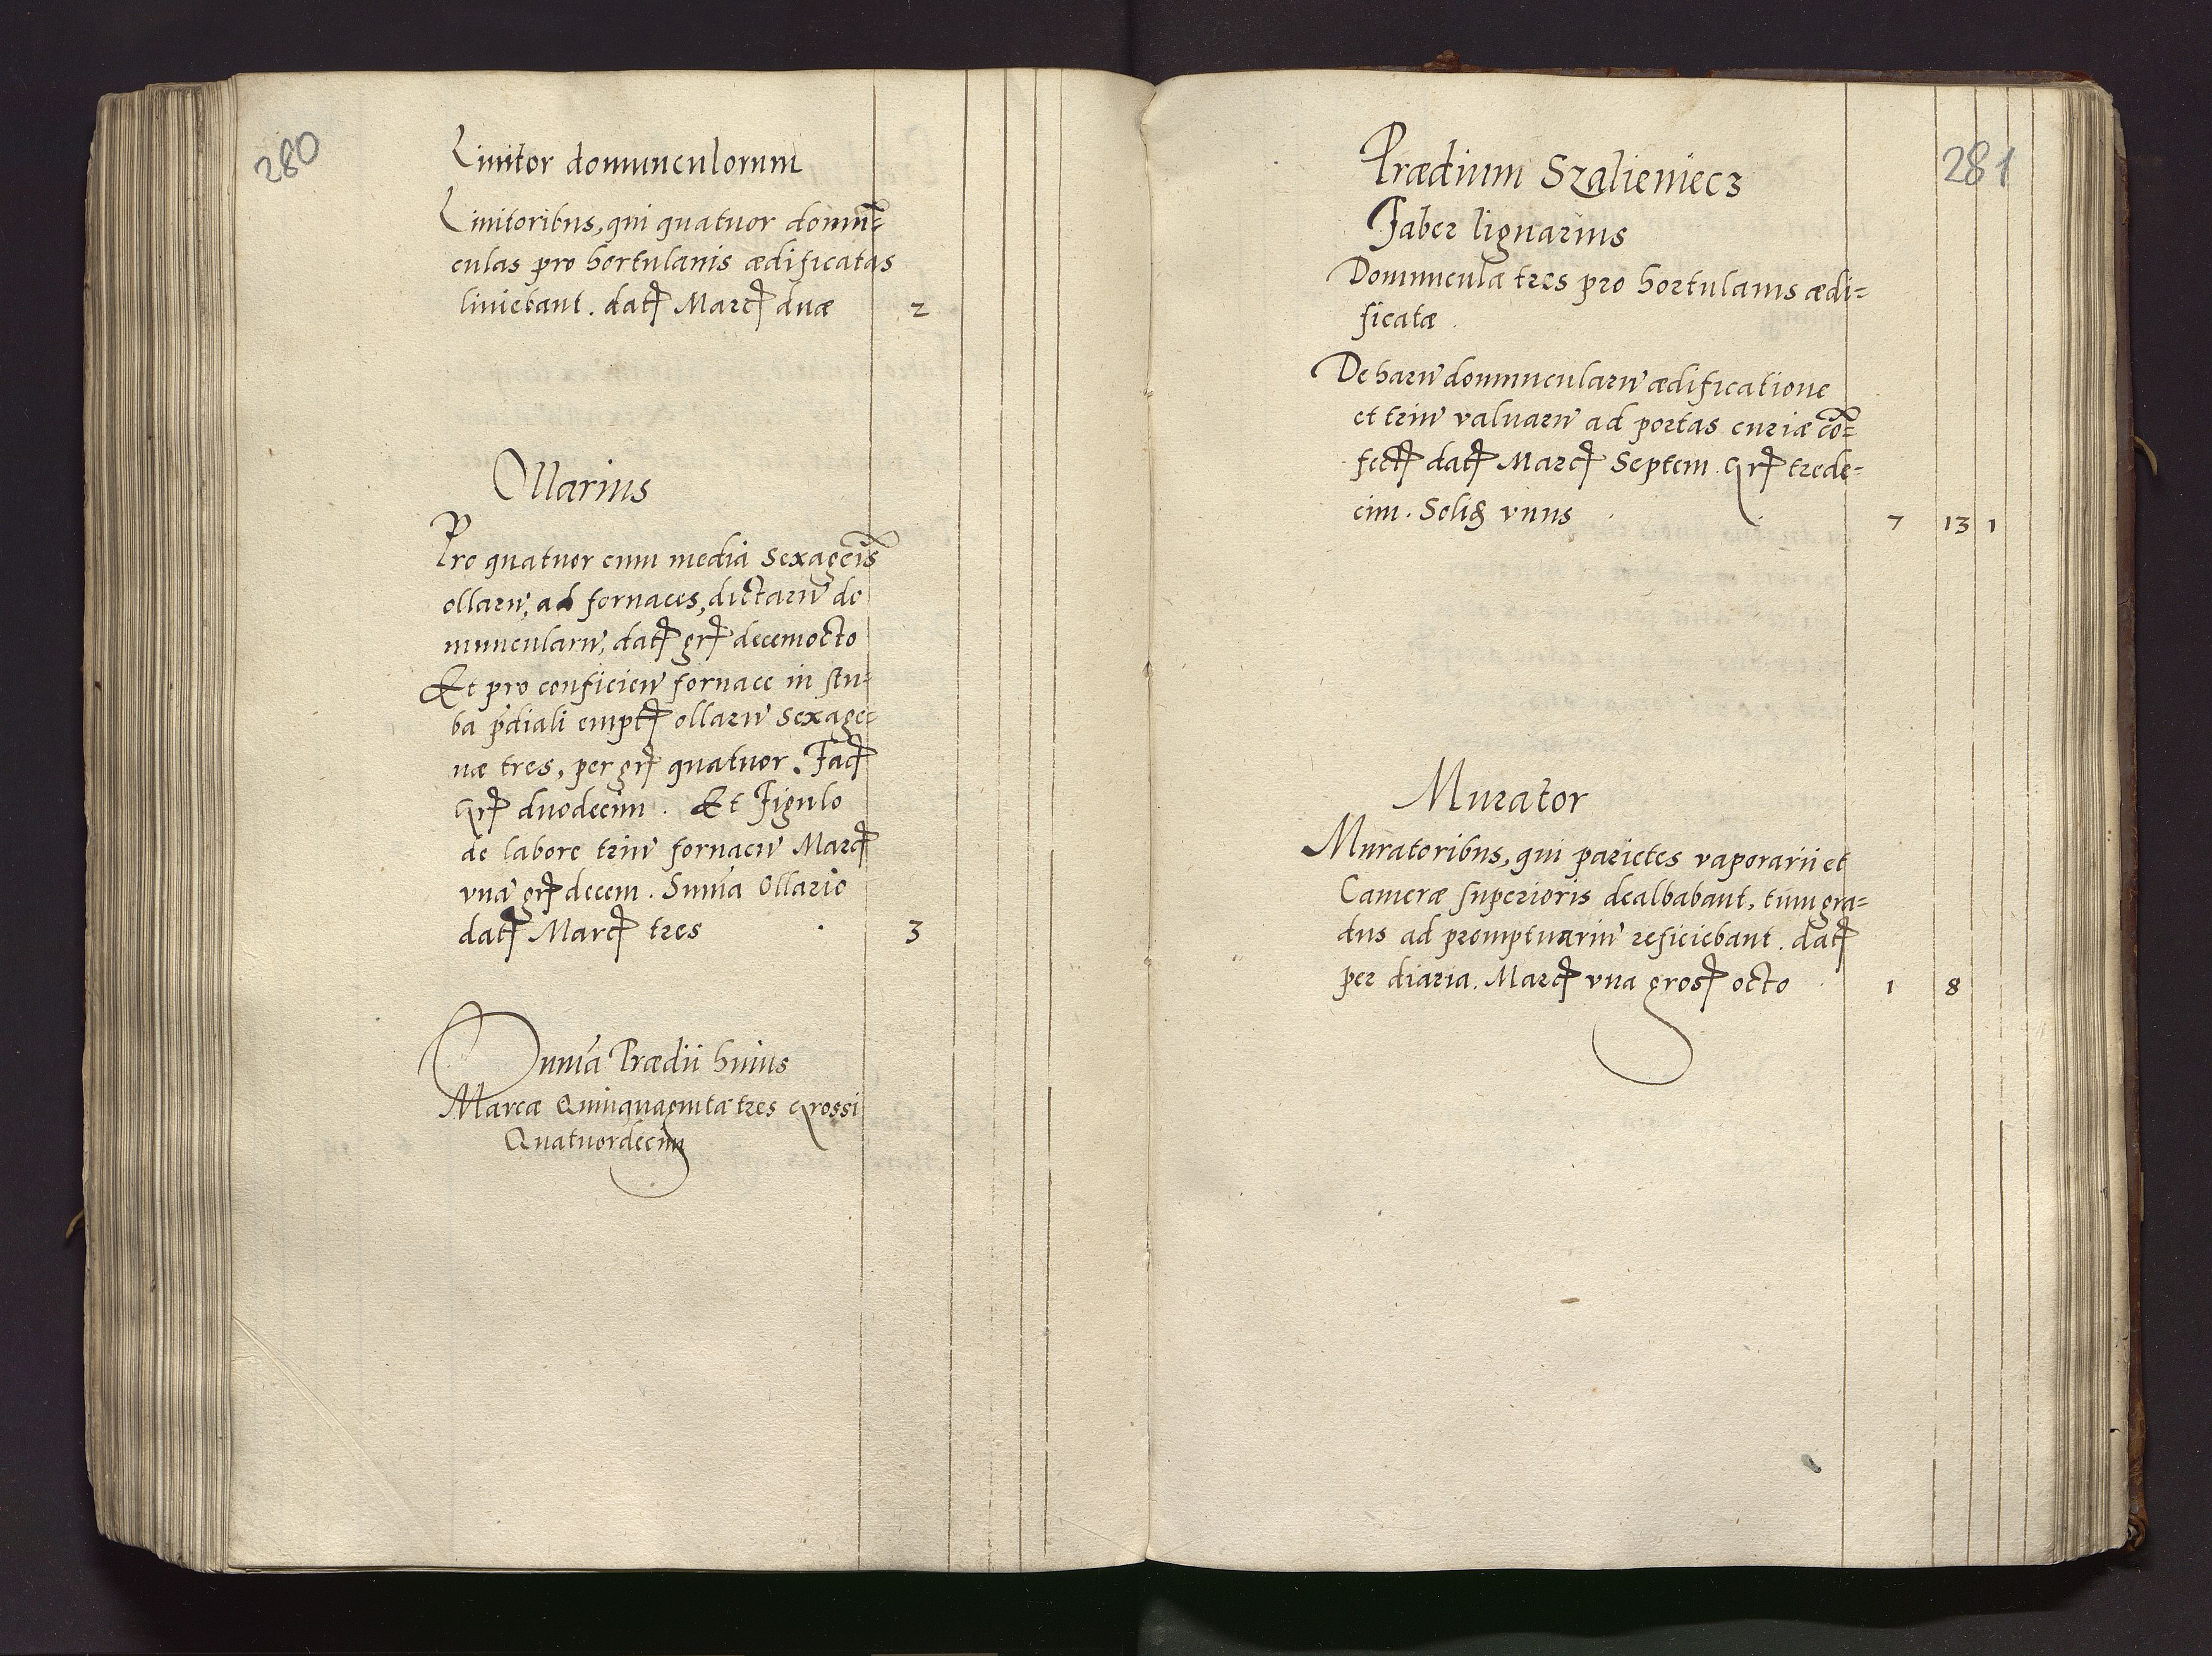 280
Linitor domunculorum
Linitoribus, qui quatuor domū=
culas pro hortulanis ædificatas
liniebant. datꝭ Marcꝭ duæ 2
Ollarius
Pro quatuor cum media sexageīs
ollarū, ad fornaces, dictarū do
muncularū, datꝭ grꝭ decemocto
Et pro conficien̄ fornace in stu=
ba p̄diali emptꝭ ollarū sexage=
næ tres, per grꝭ quatuor. Facꝭ
Grꝭ duodecim. Et Figulo
de labore triū fornacū Marcꝭ
vnā grꝭ decem. Sum̄a Ollario
datꝭ Marcꝭ tres 3
Sum̄a Prædii huius
Marcæ Quinquaginta tres Grossi
Quatuordecim
281
Prædium Szalieniecz
Faber lignarius
Domuncula tres pro hortulanis ædi=
ficatæ.
De harū domuncularū ædificatione
et triū valuarū ad portas curiæ cō=
fectꝭ datꝭ Marcꝭ Septem. Grꝭ trede=
cim. Soliꝭ vnus 7 13 1
Murator
Muratoribus, qui parietes vaporarii et
Cameræ superioris dealbabant, tum gra=
dus ad promptuariū reficiebant. datꝭ
per diaria. Marcꝭ vna grosꝭ octo 1 8